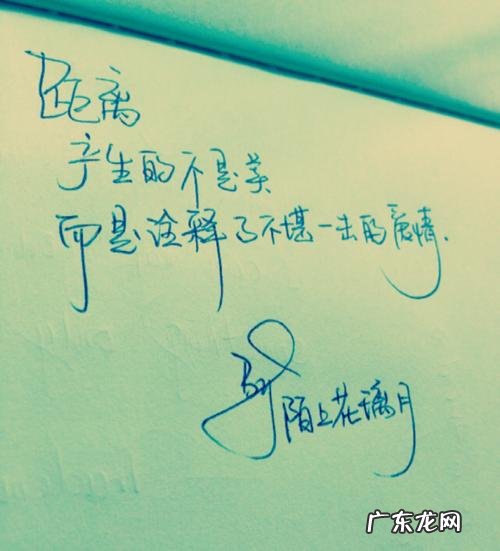 距离
产生的不是美
而是诠释了不堪一击的爱情.
By 陌上花璃月
广东龙网